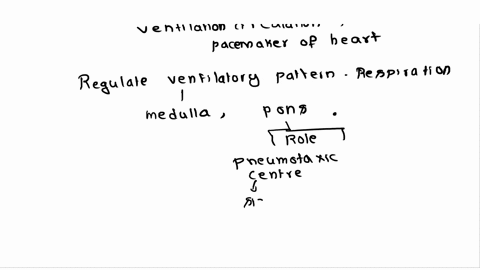 pacemaker of heart
Regulate ventilatory pattern. Respiration
medulla, pons.
Role
pneumotaxic
centre